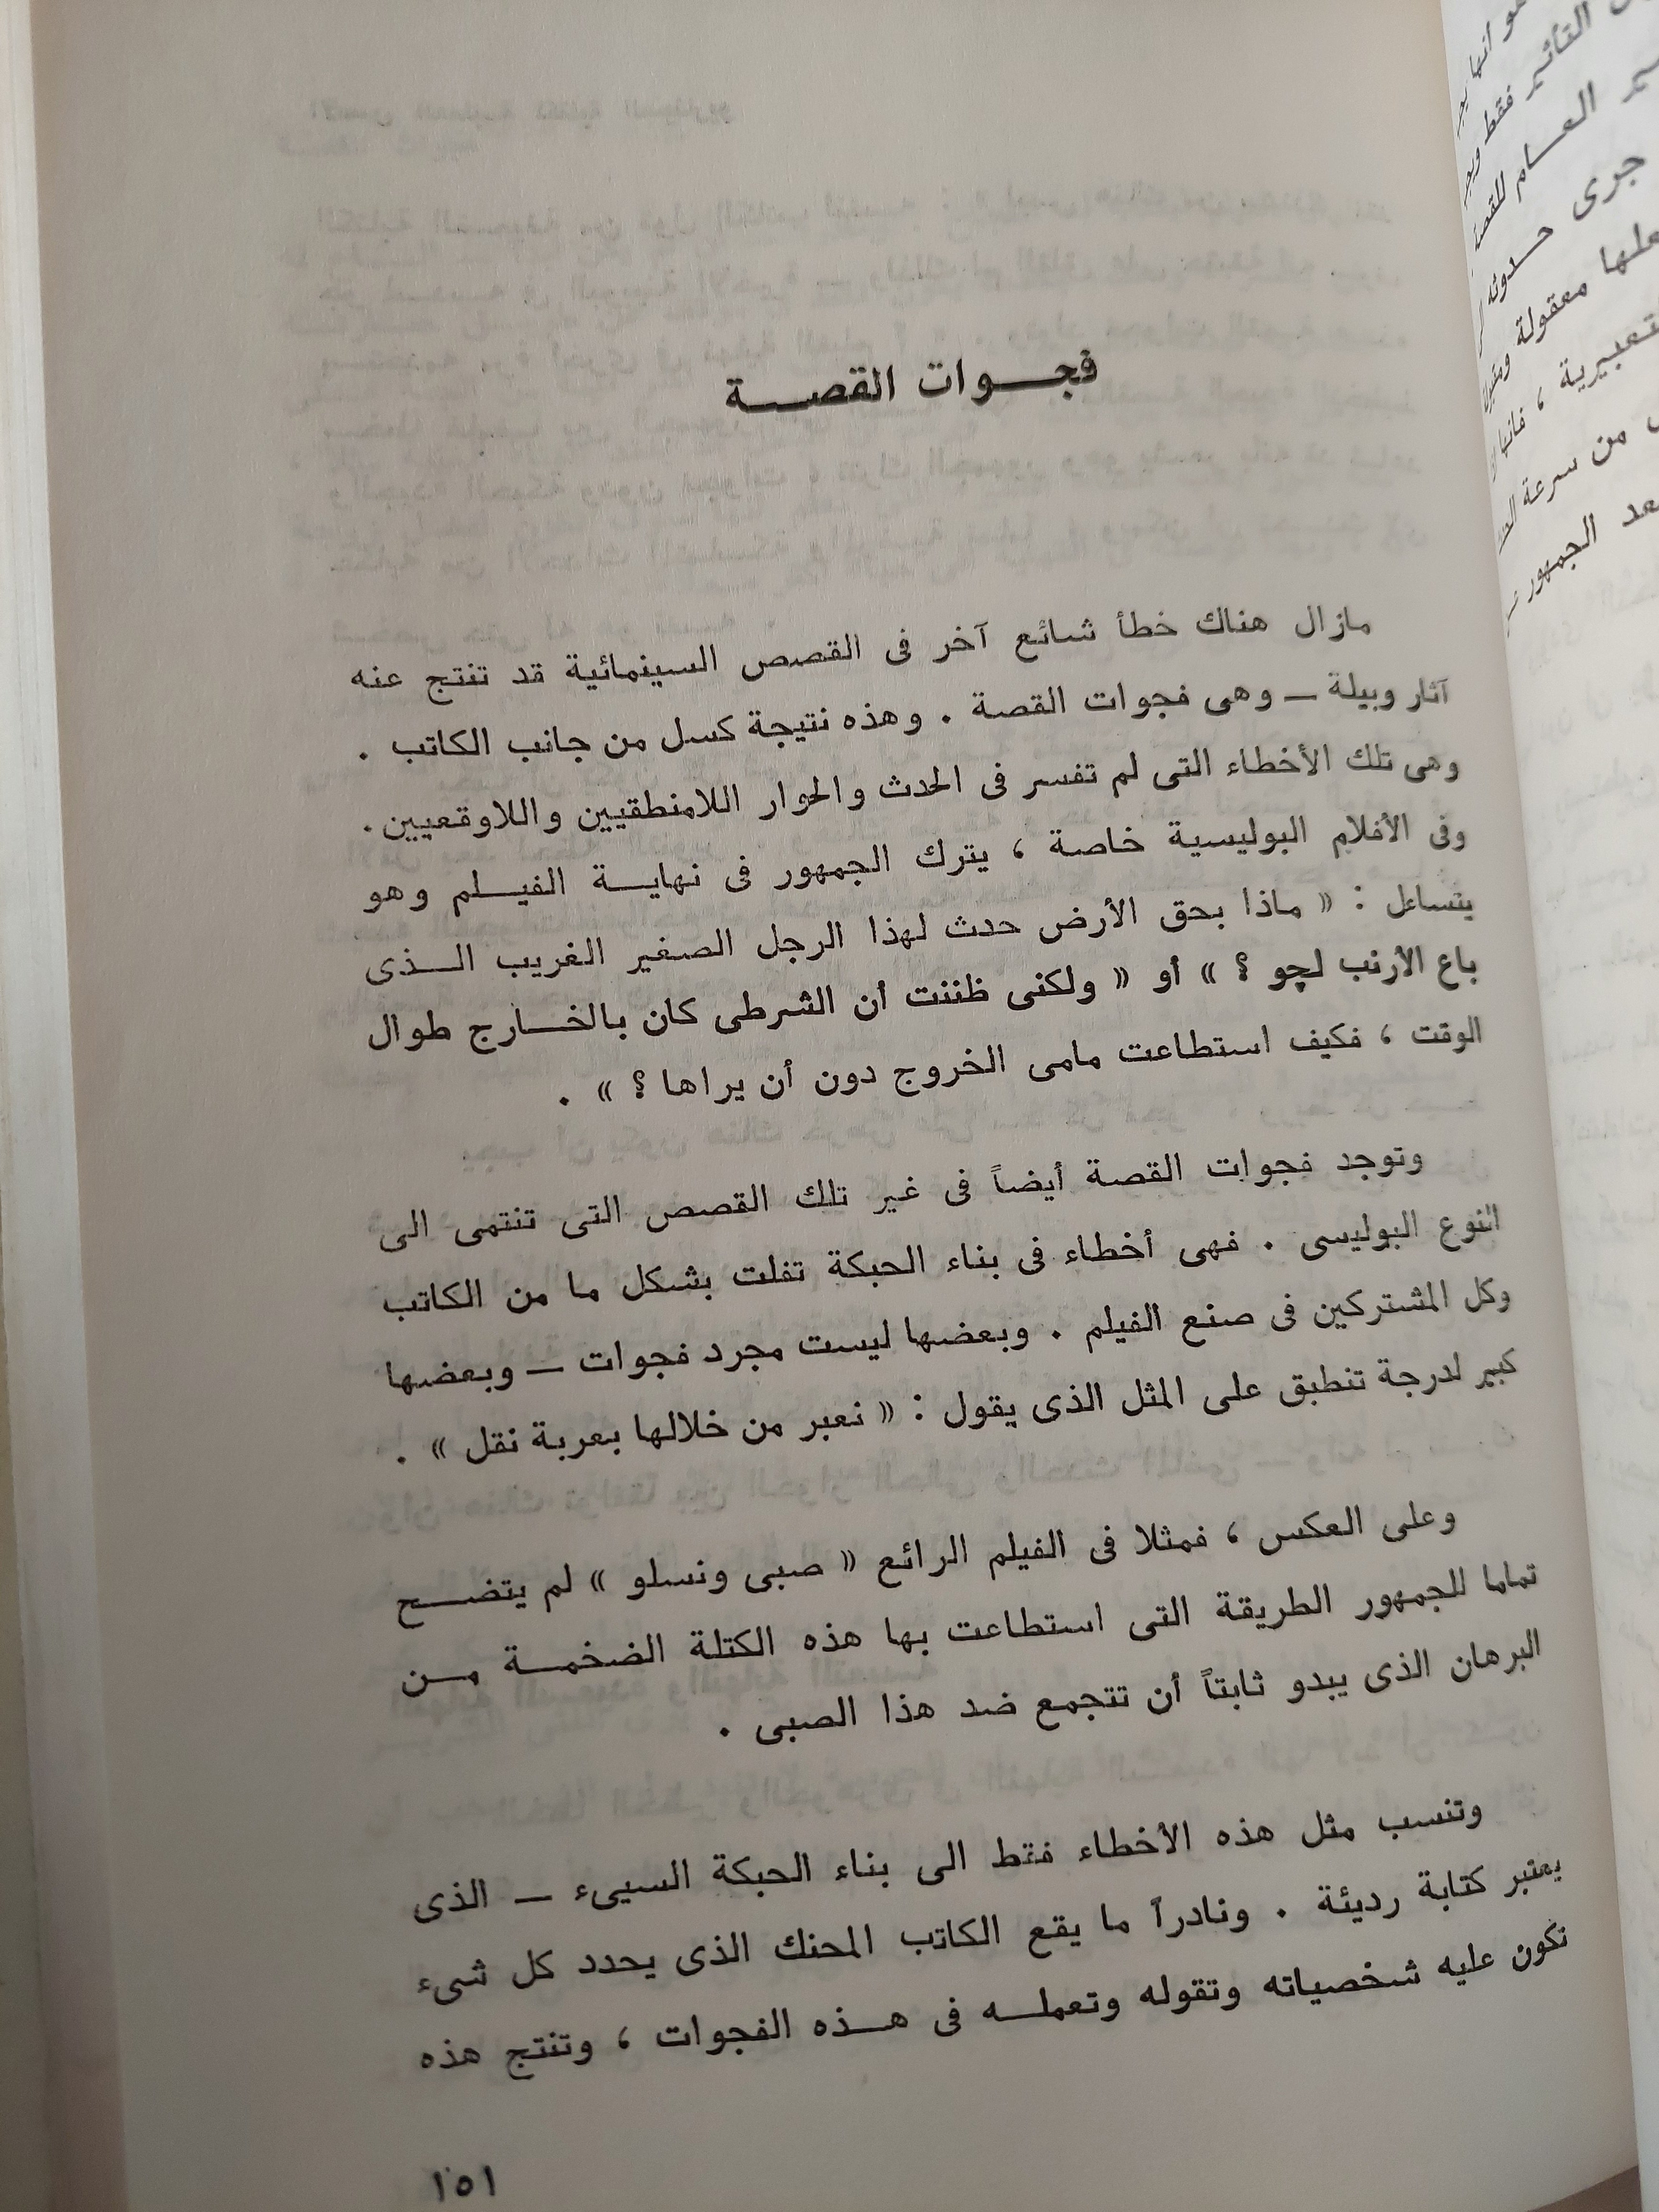 فجـــوات القصـــة
مازال هناك خطأ شائع آخر فى القصص السينمائية قد تنتج عنه
آثار وبيلة — وهى فجوات القصة . وهذه نتيجة كسل من جانب الكاتب .
وهى تلك الأخطاء التى لم تفسر فى الحدث والحوار اللامنطقيين واللاوقعيين .
وفى الأفلام البوليسية خاصة ، يترك الجمهور فى نهايـــة الفيـــلم وهو
يتساءل : « ماذا بحق الأرض حدث لهذا الرجل الصغير الغريب الـــذى
باع الأرنب لچو ؟ » أو « ولكنى ظننت أن الشرطى كان بالخـــارج طوال
الوقت ، فكيف استطاعت مامى الخروج دون أن يراها ؟ » .
وتوجد فجوات القصة أيضاً فى غير تلك القصص التى تنتمى الى
النوع البوليسى . فهى أخطاء فى بناء الحبكة تفلت بشكل ما من الكاتب
وكل المشتركين فى صنع الفيلم . وبعضها ليست مجرد فجوات — وبعضها
كبير لدرجة تنطبق على المثل الذى يقول : « نعبر من خلالها بعربة نقل » .
وعلى العكس ، فمثلا فى الفيلم الرائع « صبى ونسلو » لم يتضـــح
تماما للجمهور الطريقة التى استطاعت بها هذه الكتلة الضخمـــة مـــن
البرهان الذى يبدو ثابتاً أن تتجمع ضد هذا الصبى .
وتنسب مثل هذه الأخطاء فقط الى بناء الحبكة السيىء — الذى
يعتبر كتابة رديئة . ونادراً ما يقع الكاتب المحنك الذى يحدد كل شىء
تكون عليه شخصياته وتقوله وتعملـــه فى هـــذه الفجوات ، وتنتج هذه
١٥١
التأثير فقط
العـــام للقصة
جرى حـــدوثه
معقولة
من سرعة
الجمهور